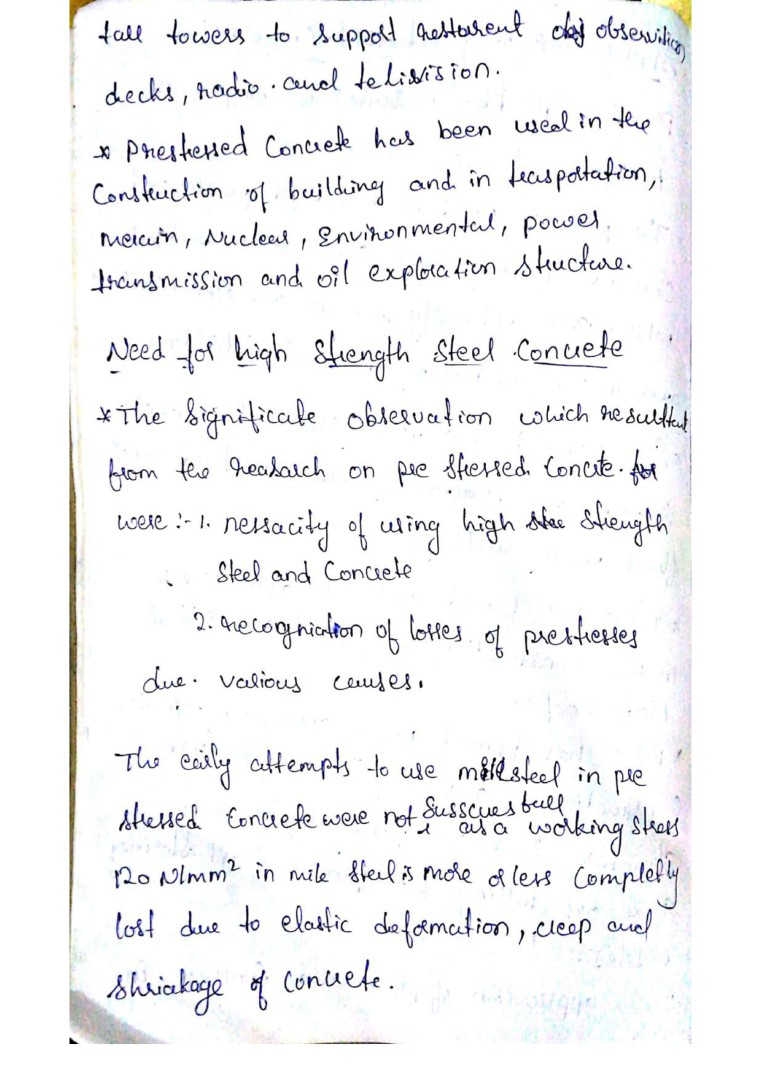 tall towers to support restarent obj observation
decks, radio. and telivision.
* Prestressed Concrete has been used in the
Construction of building and in trasportation,
Merain, Nuclear, Environmental, power
transmission and oil exploration structure.
Need for high Strength Steel Concrete
* The Significate observation which resulted
from the reasarch on pre stressed Concrte. for
were :- 1. nessacity of using high stee strength
Steel and Concrete
2. recogniation of losses of prestresses
due. various causes.
The early attempts to use mild steel in pre
stressed Concrete were not Susscuesbull as a working stress
120 N/mm² in mile steel is more or less completly
lost due to elastic deformation, creep and
shriakage of concrete.